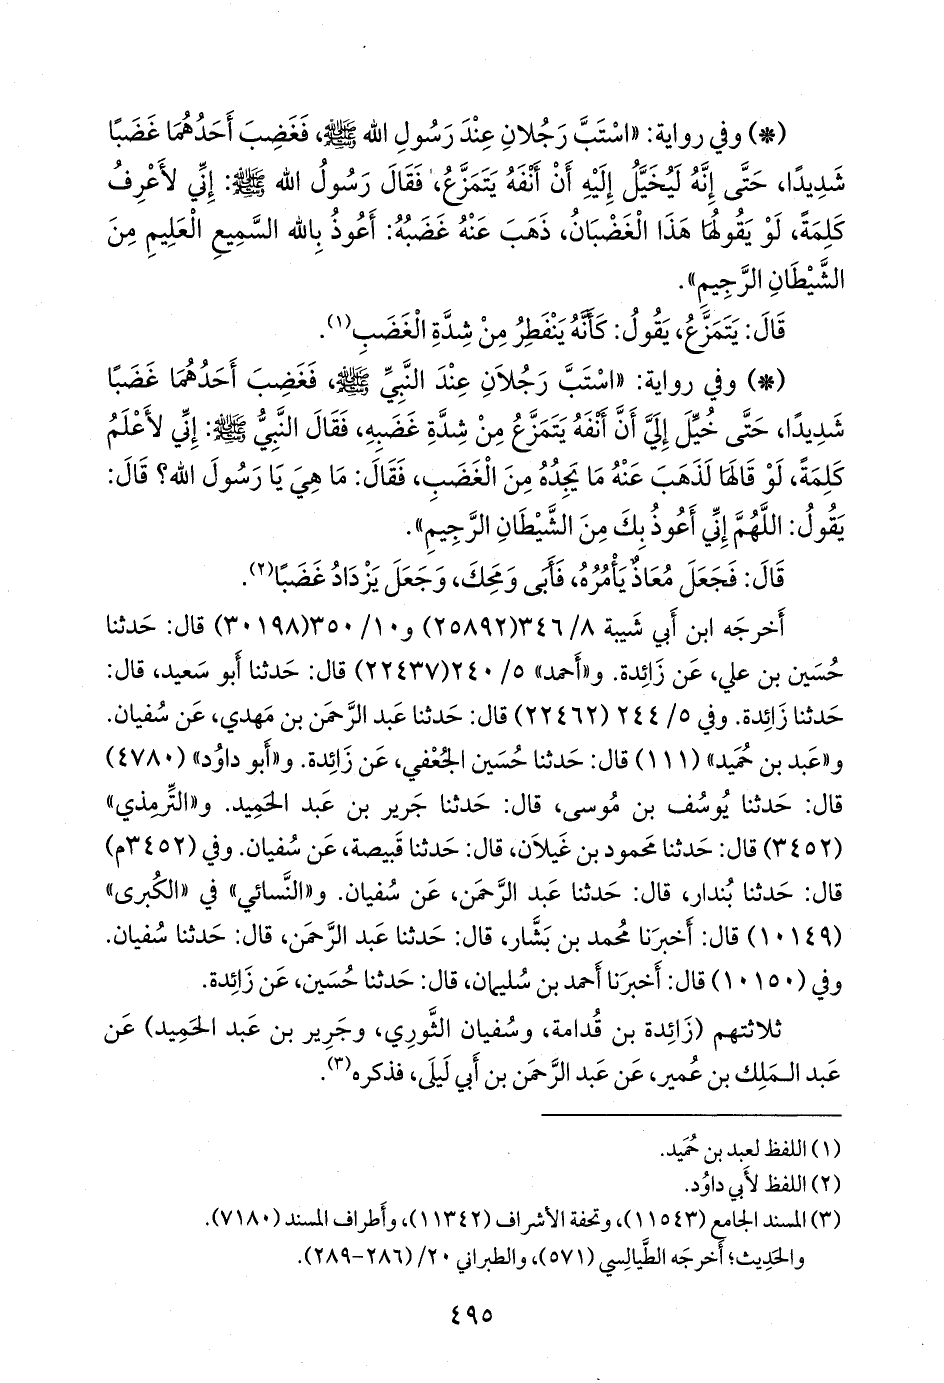 (*) وفي رواية: «اسْتَبَّ رَجُلانِ عِنْدَ رَسُولِ الله ﷺ، فَغَضِبَ أَحَدُهُمَا غَضَبًا
شَدِيدًا، حَتَّى إِنَّهُ لَيُخَيَّلُ إِلَيْهِ أَنْ أَنْفَهُ يَتَمَزَّعُ، فَقَالَ رَسُولُ الله ﷺ: إِنِّي لأَعْرِفُ
كَلِمَةً، لَوْ يَقُولُهَا هَذَا الْغَضْبَانُ، ذَهَبَ عَنْهُ غَضَبُهُ: أَعُوذُ بِالله السَّمِيعِ الْعَلِيمِ مِنَ
الشَّيْطَانِ الرَّجِيمِ».
قَالَ: يَتَمَزَّعُ، يَقُولُ: كَأَنَّهُ يَنْفَطِرُ مِنْ شِدَّةِ الْغَضَبِ(١).
(*) وفي رواية: «اسْتَبَّ رَجُلاَنِ عِنْدَ النَّبِيِّ ﷺ، فَغَضِبَ أَحَدُهُمَا غَضَبًا
شَدِيدًا، حَتَّى خُيِّلَ إِلَيَّ أَنَّ أَنْفَهُ يَتَمَزَّعُ مِنْ شِدَّةِ غَضَبِهِ، فَقَالَ النَّبِيُّ ﷺ: إِنِّي لأَعْلَمُ
كَلِمَةً، لَوْ قَالَهَا لَذَهَبَ عَنْهُ مَا يَجِدُهُ مِنَ الْغَضَبِ، فَقَالَ: مَا هِيَ يَا رَسُولَ الله؟ قَالَ:
يَقُولُ: اللَّهُمَّ إِنِّي أَعُوذُ بِكَ مِنَ الشَّيْطَانِ الرَّجِيمِ».
قَالَ: فَجَعَلَ مُعَاذٌ يَأْمُرُهُ، فَأَبَى وَمَحِكَ، وَجَعَلَ يَزْدَادُ غَضَبًا(٢).
أَخرجَه ابن أَبي شَيبة ٨/ ٣٤٦(٢٥٨٩٢) و١٠/ ٣٥٠(٣٠١٩٨) قال: حَدثنا
حُسَين بن علي، عَن زَائِدة. و«أَحمد» ٥/ ٢٤٠(٢٢٤٣٧) قال: حَدثنا أَبو سَعيد، قال:
حَدثنا زَائِدة. وفي ٥/ ٢٤٤ (٢٢٤٦٢) قال: حَدثنا عَبد الرَّحمَن بن مَهدي، عَن سُفيان.
و«عَبد بن حُميد» (١١١) قال: حَدثنا حُسَين الجُعْفي، عَن زَائِدة. و«أَبو داوُد» (٤٧٨٠)
قال: حَدثنا يُوسُف بن مُوسى، قال: حَدثنا جَرير بن عَبد الحَمِيد. و«التِّرمِذي»
(٣٤٥٢) قال: حَدثنا محمود بن غَيلاَن، قال: حَدثنا قَبيصة، عَن سُفيان. وفي (٣٤٥٢م)
قال: حَدثنا بُندار، قال: حَدثنا عَبد الرَّحمَن، عَن سُفيان. و«النَّسائي» في «الكُبرى»
(١٠١٤٩) قال: أَخبرَنا مُحمد بن بَشَّار، قال: حَدثنا عَبد الرَّحمَن، قال: حَدثنا سُفيان.
وفي (١٠١٥٠) قال: أَخبرَنا أَحمد بن سُليمان، قال: حَدثنا حُسَين، عَن زَائِدة.
ثلاثتهم (زَائِدة بن قُدامة، وسُفيان الثَّوري، وجَرِير بن عَبد الحَمِيد) عَن
عَبد الـمَلِك بن عُمير، عَن عَبد الرَّحمَن بن أَبي لَيلَى، فذكره(٣).
(١) اللفظ لعبد بن حُميد.
(٢) اللفظ لأَبي داوُد.
(٣) المسند الجامع (١١٥٤٣)، وتحفة الأشراف (١١٣٤٢)، وأَطراف المسند (٧١٨٠).
والحَدِيث؛ أَخرجَه الطَّيالِسي (٥٧١)، والطبراني ٢٠/ (٢٨٦-٢٨٩).
٤٩٥